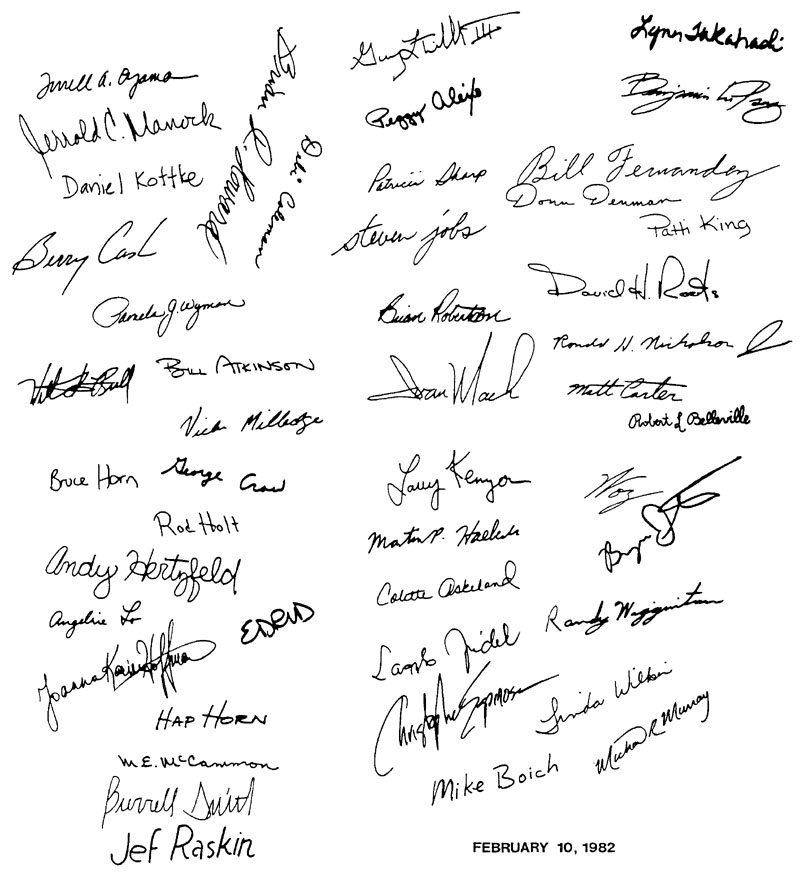 Terrell A. Oyama
Jerrold C. Manock
Daniel Kottke
Brian R. Howard
Debi Coleman
Berry Cash
Pamela J. Wyman
Bill Atkinson
Vicki Milledge
Bruce Horn
George Crow
Rod Holt
Andy Hertzfeld
Angeline Lo
EDRUD
Joanna Karin Hoffman
Hap Horn
M.E. McCammon
Burrell Smith
Jef Raskin
III
Peggy Alexio
Patricia Sharp
steven jobs
Brian Robertson
Ivan Mach
Larry Kenyon
Martin P. Haeberli
Colette Askeland
Laszlo Zidek
Christopher Espinosa
Mike Boich
Lynn Takahashi
Benjamin
Bill Fernandez
Donn Denman
Patti King
David H. Roots
Ronald H. Nicholson
Matt Carter
Robert L Belleville
Woz
Bryan
Randy Wigginton
Linda Wilkin
Michael R Murray
FEBRUARY 10, 1982